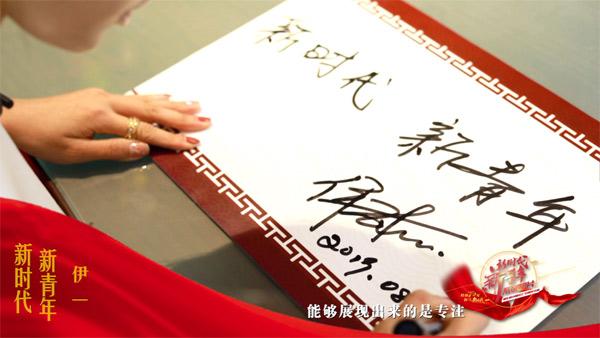 新时代
新青年
2019.08
新时代
新青年
伊一
能够展现出来的是专注
新时代